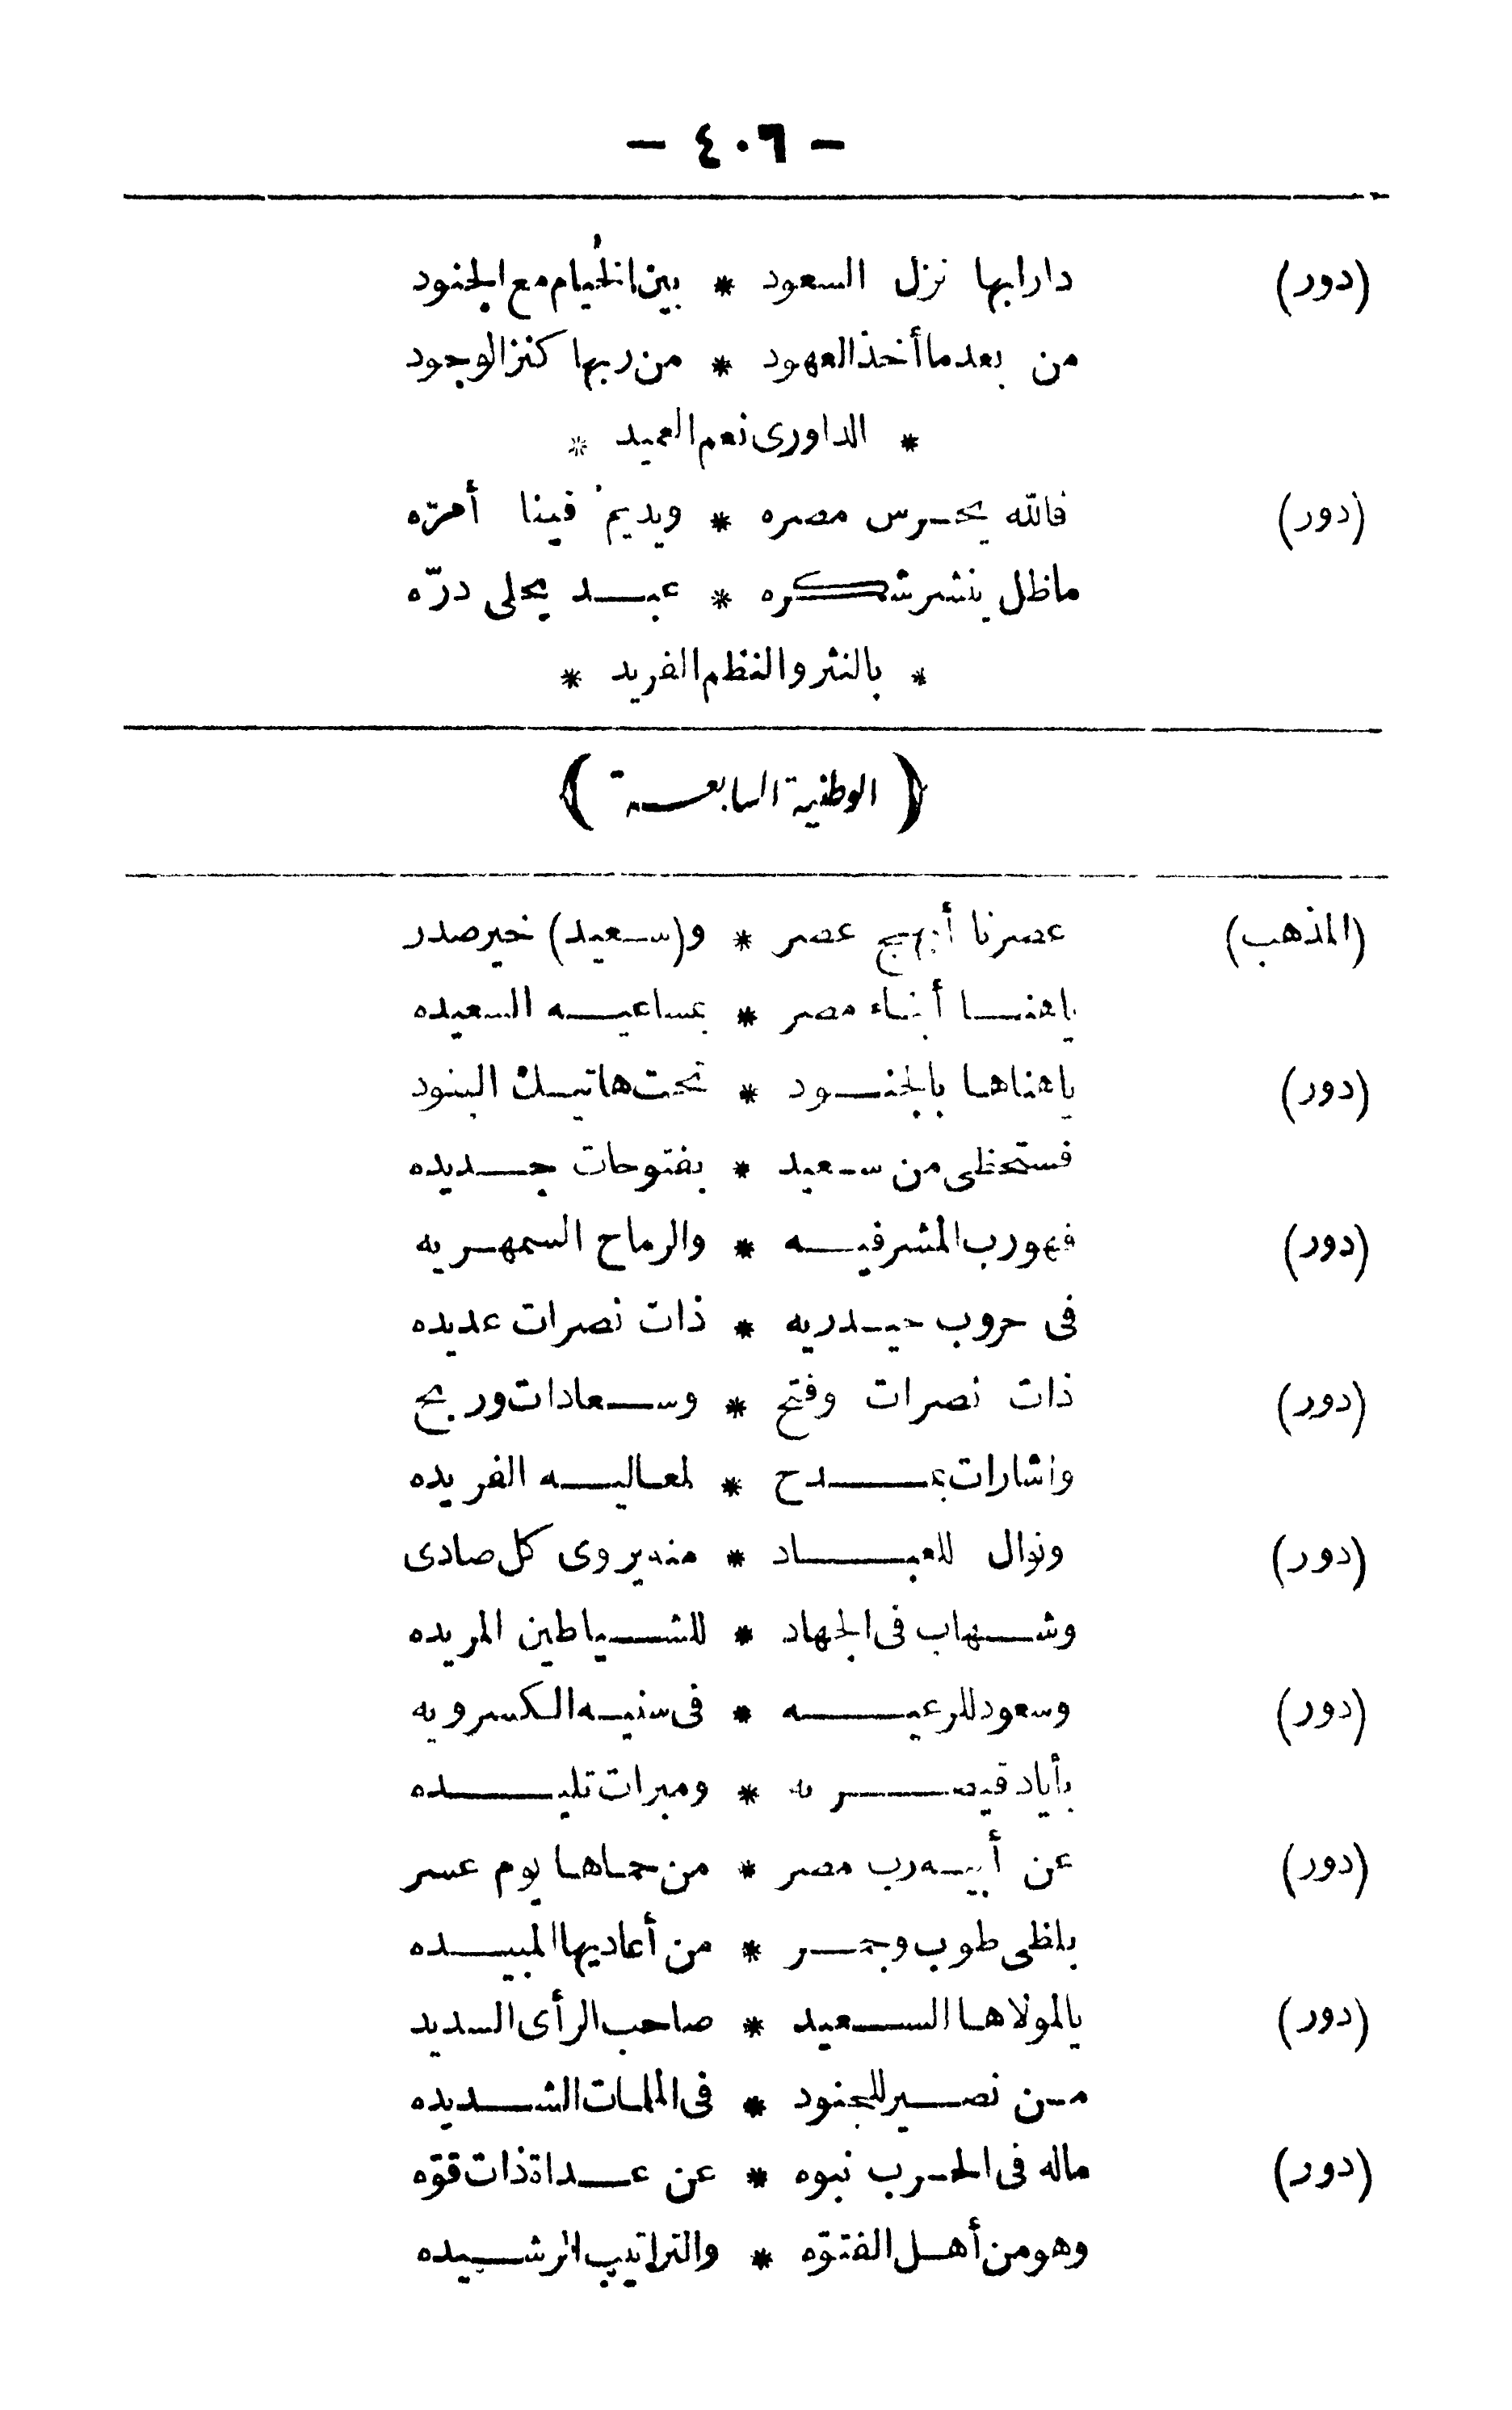 - ٤٠٦ -
(دور) دارابها نزل السعود * بين الخيام مع الجنود
من بعدما أخذ العهود * من ربها كنز الوجود
* الداورى نعم العميد *
(دور) فالله يحرس مصره * ويديم فينا أمرّه
ماظل ينشر شكره * عبد يحلى درّه
* بالنثر والنظم الفريد *
﴿ الوطنية السابعة ﴾
(المذهب) عصرنا أبهج عصر * و(سعيد) خير صدر
ياهنا أبناء مصر * بمساعيه السعيده
(دور) ياهناها بالجنود * تحت هاتيك البنود
فستحظى من سعيد * بفتوحات جديده
(دور) فهو رب المشرفيه * والرماح السمهريه
فى حروب حيدريه * ذات نصرات عديده
(دور) ذات نصرات وفتح * وسعادات وربح
واشارات بمدح * لمعاليه الفريده
(دور) ونوال للعباد * منه يروى كل صادى
وشهاب فى الجهاد * للشياطين المريده
(دور) وسعود للرعيه * فى سنيه الكسرويه
بأياد قيصريه * ومبرات تليده
(دور) عن أبيه رب مصر * من حماها يوم عسر
بلظى طوب وجمر * من أعاديها المبيده
(دور) يالمولاها السعيد * صاحب الرأى السديد
من نصير للجنود * فى الملمات الشديده
(دور) ماله فى الحرب نبوه * عن عداة ذات قوّه
وهو من أهل الفتوّه * والتراتيب الرشيده